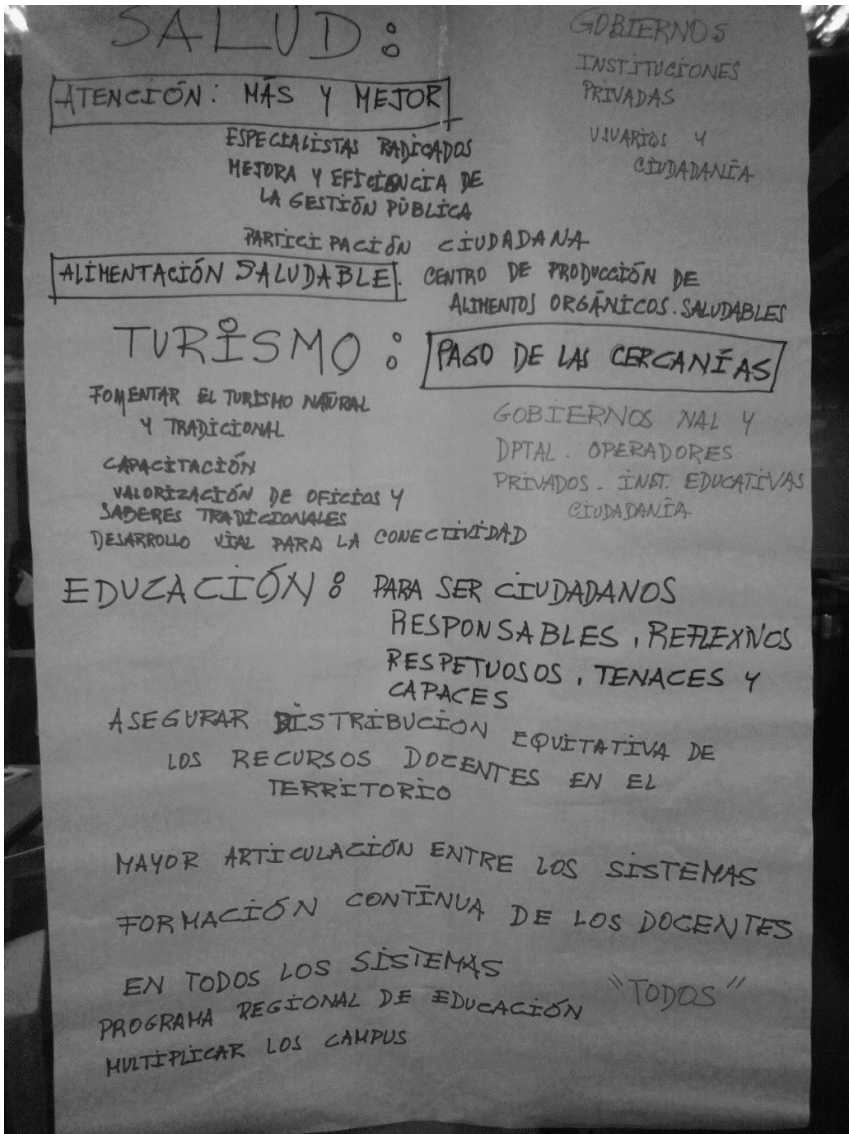 SALUD:
GOBIERNOS
INSTITUCIONES
PRIVADAS
USUARIOS Y
CIUDADANÍA
ATENCIÓN: MÁS Y MEJOR
ESPECIALISTAS RADICADOS
MEJORA Y EFICIENCIA DE
LA GESTIÓN PÚBLICA
PARTICIPACIÓN CIUDADANA
ALIMENTACIÓN SALUDABLE. CENTRO DE PRODUCCIÓN DE
ALIMENTOS ORGÁNICOS. SALUDABLES
TURISMO: PAGO DE LAS CERCANÍAS
FOMENTAR EL TURISMO NATURAL
Y TRADICIONAL
CAPACITACIÓN
VALORIZACIÓN DE OFICIOS Y
SABERES TRADICIONALES
DESARROLLO VIAL PARA LA CONECTIVIDAD
GOBIERNOS NAL Y
DPTAL. OPERADORES
PRIVADOS. INST. EDUCATIVAS
CIUDADANÍA
EDUCACIÓN: PARA SER CIUDADANOS
RESPONSABLES, REFLEXIVOS
RESPETUOSOS, TENACES Y
CAPACES
ASEGURAR DISTRIBUCIÓN EQUITATIVA DE
LOS RECURSOS DOCENTES EN EL
TERRITORIO
MAYOR ARTICULACIÓN ENTRE LOS SISTEMAS
FORMACIÓN CONTÍNUA DE LOS DOCENTES
EN TODOS LOS SISTEMAS
"TODOS"
PROGRAMA REGIONAL DE EDUCACIÓN
MULTIPLICAR LOS CAMPUS